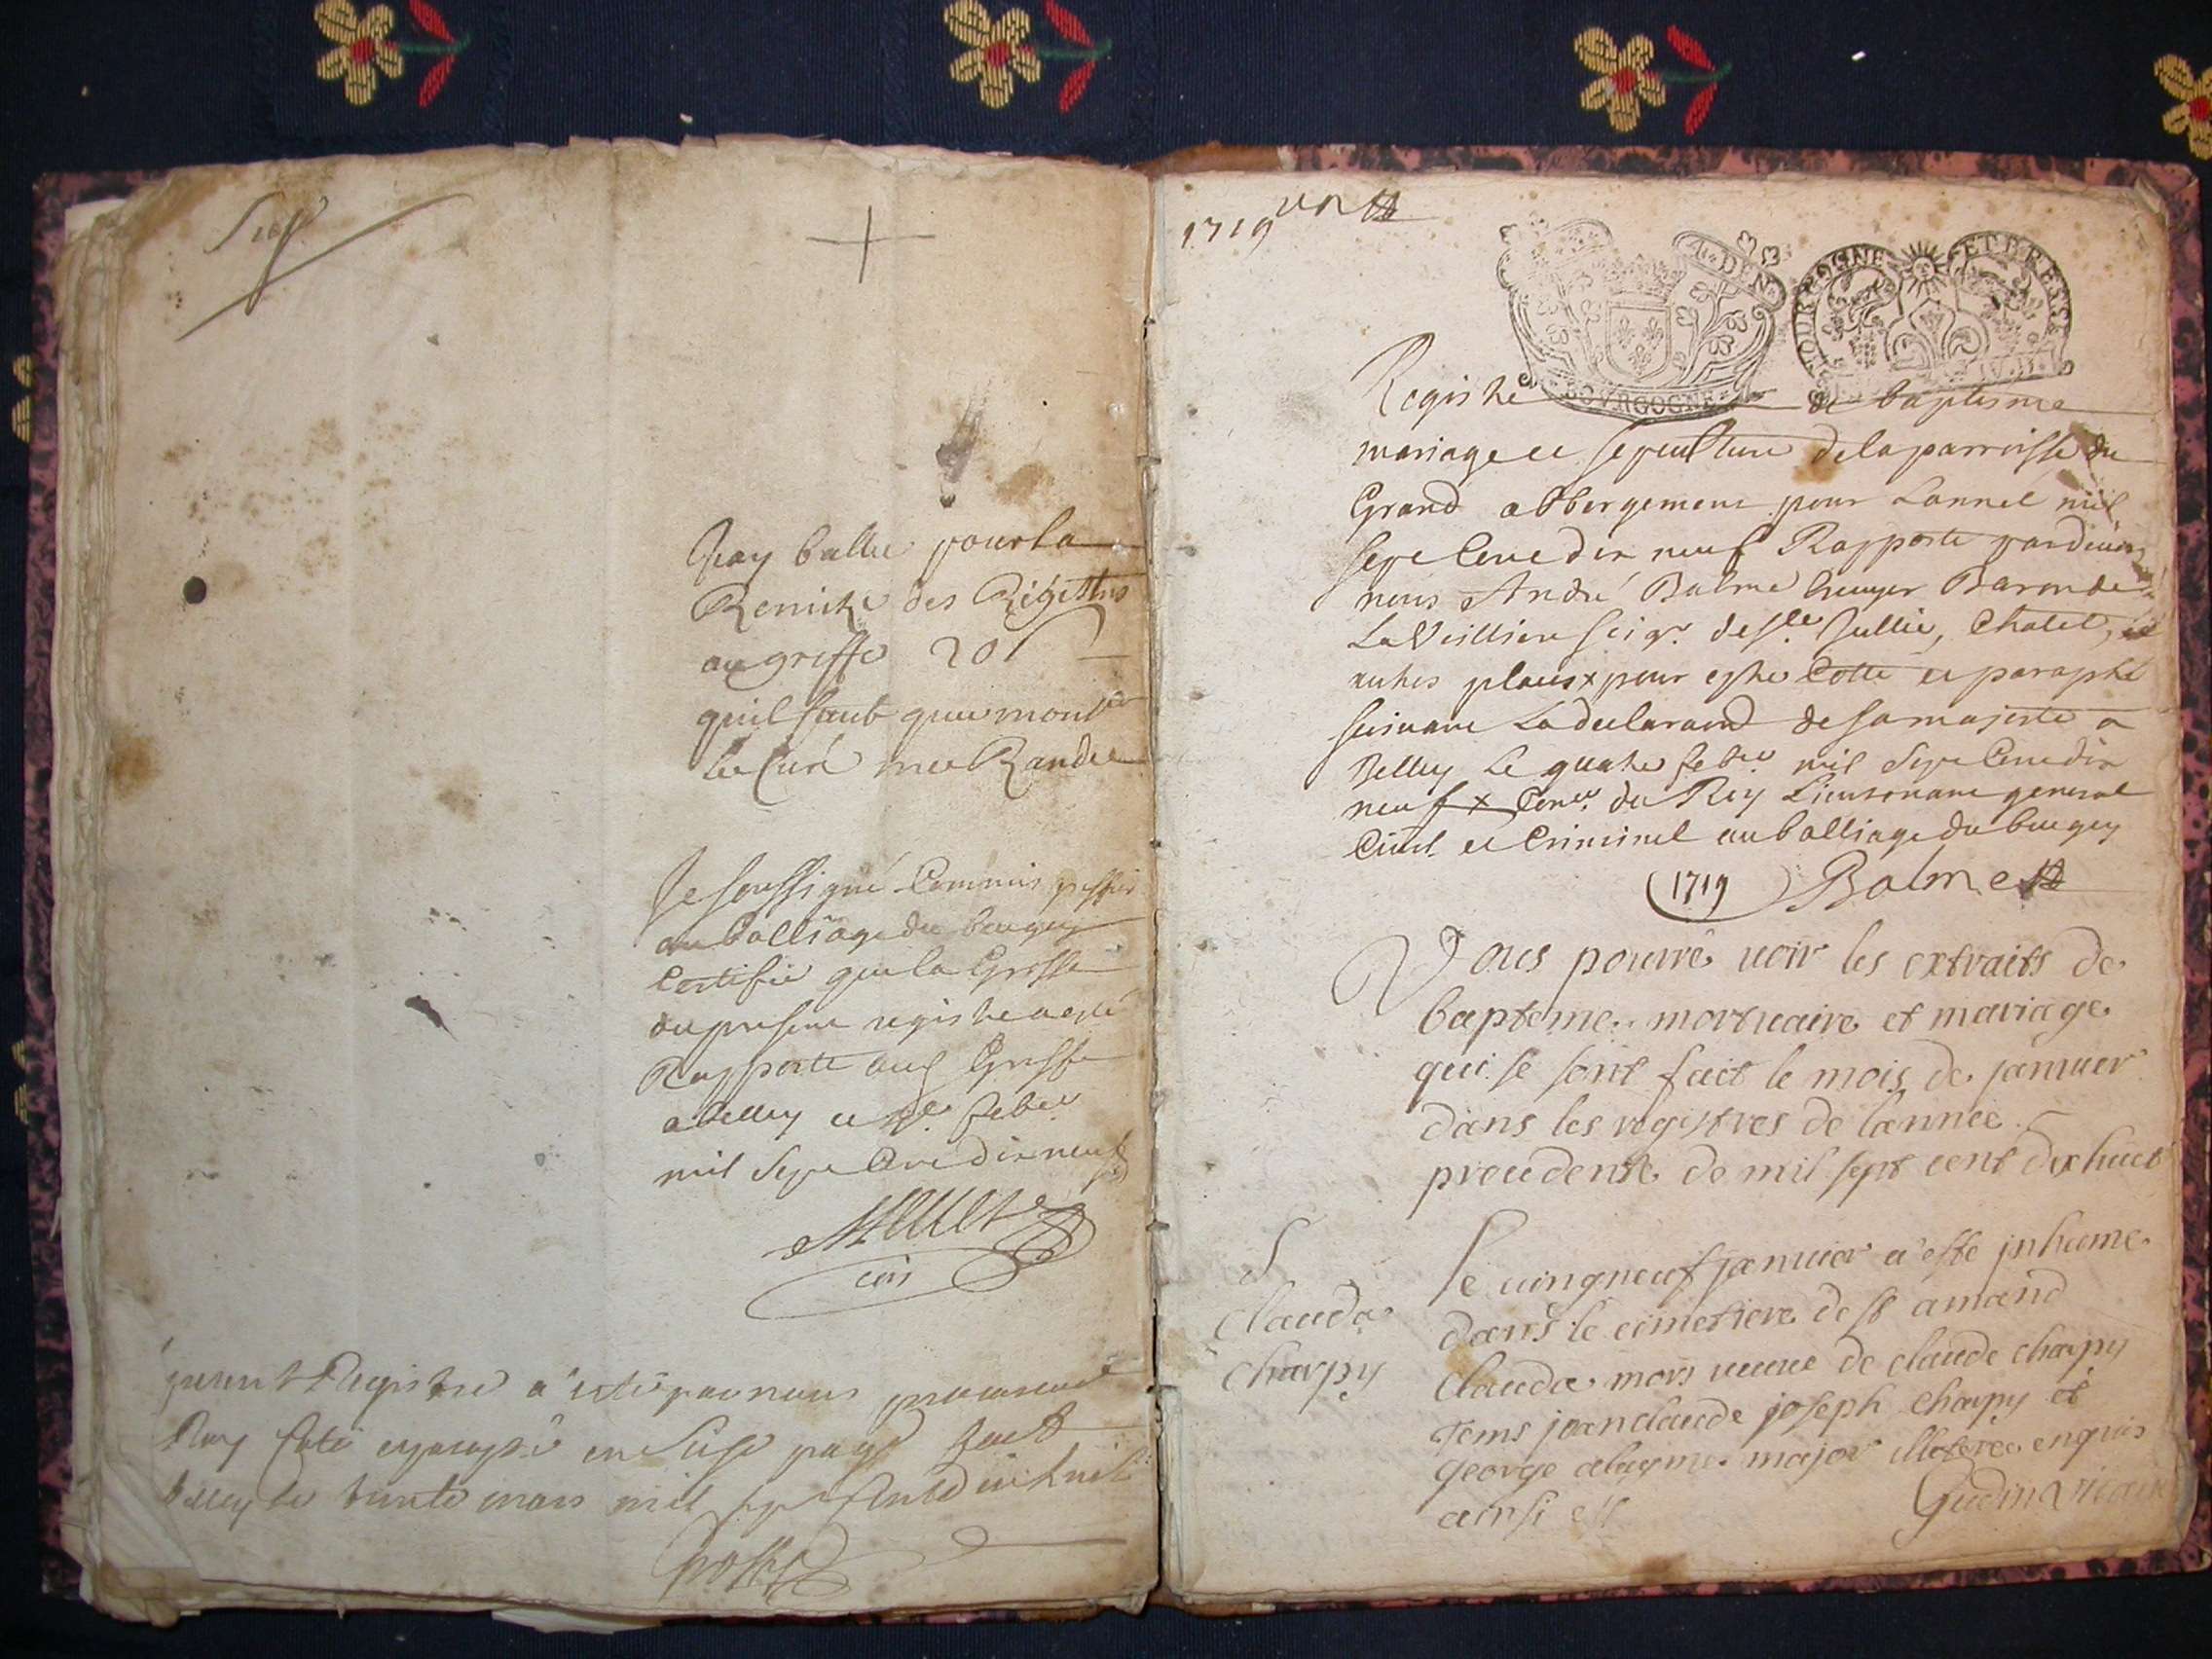 Jay ballie pour la
Remise des Regestres
au greffe 20s
quil faut que monsr
le Curé me Rande
Je soussigné Commis greffier
au balliage du beugey
Certifie que la Grosse
du present registre a esté
Rapporté au Greffe
a belley ce febvr
mil Sept Cent dix neuf
cois
present Registre a esté par nous procureur du
Roy Coté et paraphé en Seize page fait
belley le trente mars mil sept Cent dix huit
1719 un
AV. DEN.
BOVRGOGNE
BOURGOGNE ET BRESSE
Registre de baptisme
mariage et sepulture de la parroisse du
Grand abbergement pour Lannée mil
sept Cent dix neuf Rapporté pardevant
nous André Balme Ecuyer Baron de
La Veillier seigr. de Ste Jullie, Chatel, et
autres places x pour estre Cotté et paraphé
suivant La declaraond de sa majesté a
Belley Le quatre febvr mil Sept Cent dix
neuf x Coner du Roy Lieutenant general
Civil et Criminel au balliage du beugey
1719 Balme
Vous pouvré voir les extraits de
bapteme mortuaire et mariage
qui se sont fait le mois de janvier
dans les registres de lannee
precedente de mil sept cent dixhuict
S
Clauda
Charpy
le vingneuf janvier a este inhume
dans le cimetiere de st amand
Clauda mors veuve de claude charpy
Tems jeanclaude joseph charpy et
george alayme major illeteree enquis
ainsi est Gudin Vicaire